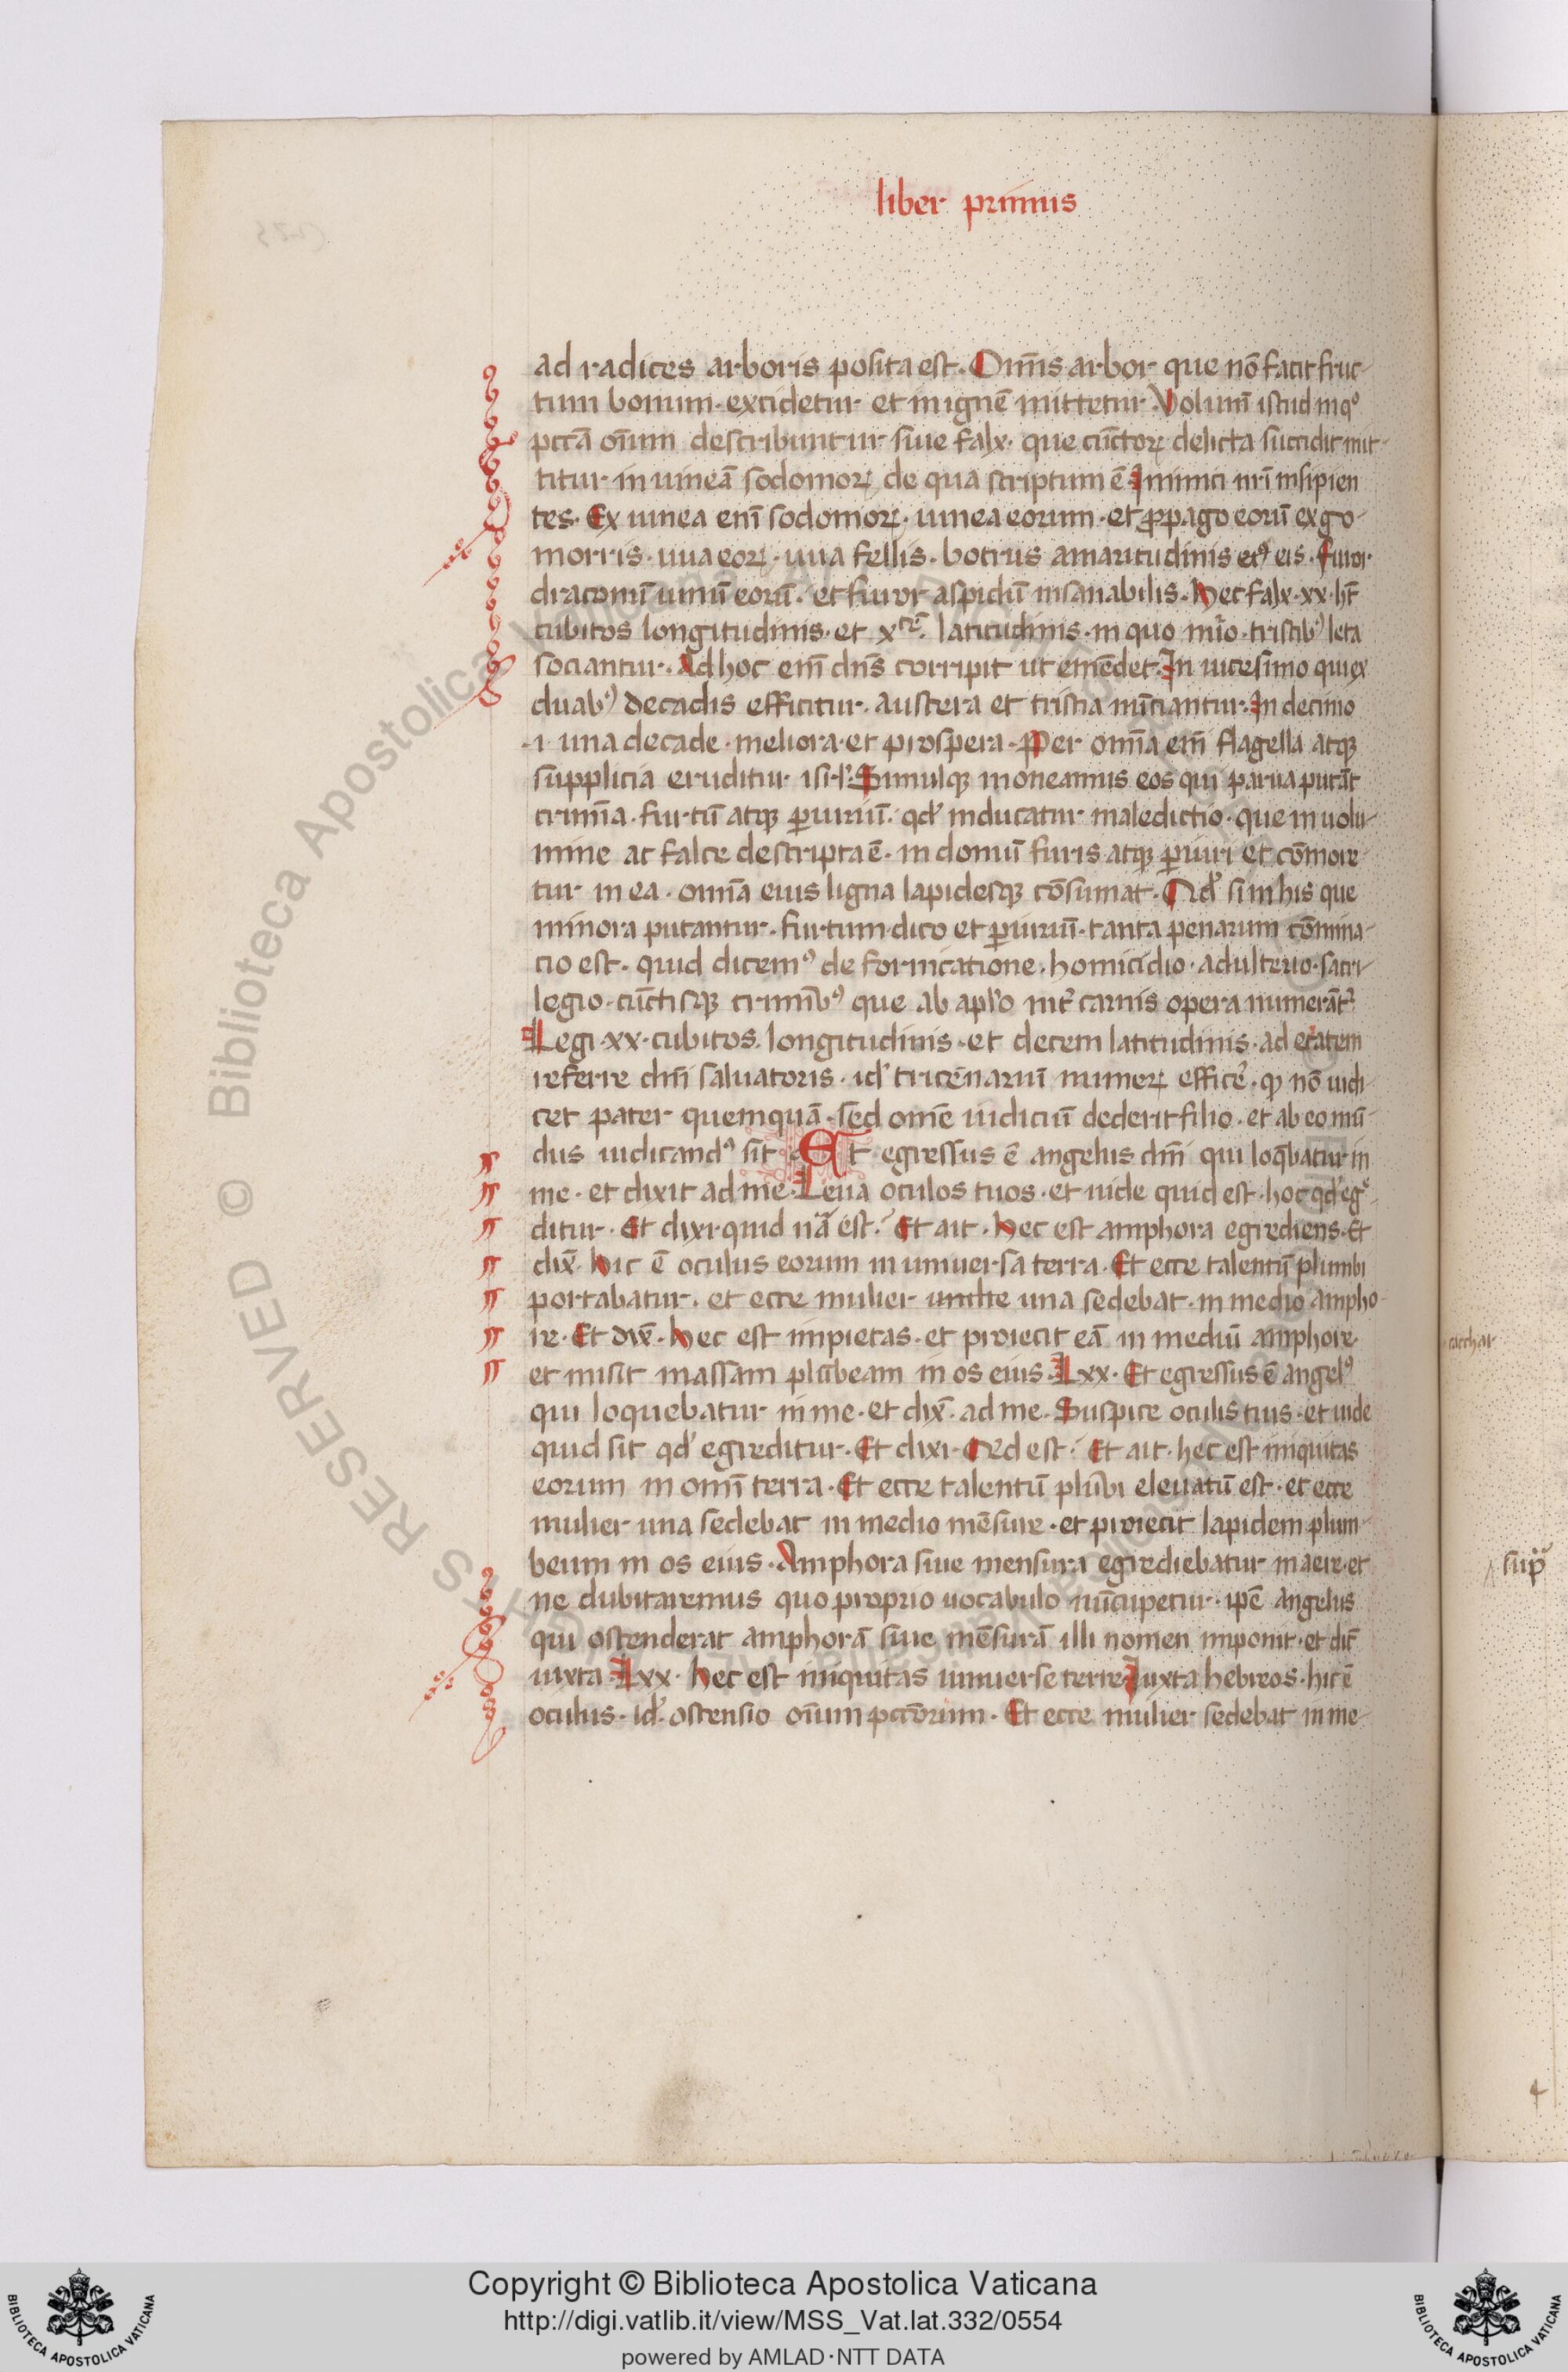 liber primus
ad radices arboris posita est. Om̄s arbor que nō facit fruc-
tum bonum. excidetur et in ignē mittetur. Volum̄ istud in qͦ
pccā om̄um describuntur siue falx. que cūctoꝝ delicta succidit mit-
titur in uineā sodomoꝝ de qua scriptum ē. Inimici nr̄i insipien
tes. Ex uinea eni᷃ sodomoꝝ. uinea eorum. et ꝓpago eorū ex go-
morris. uua eoꝝ. uua fellis. botrus amaritudinis eꝰ eis. furor
draconū uinū eorū. et furor aspidū insanabilis. Hec falx. xx. ht̄
cubitos longitudinis. et x. latitudinis. in quo nūo. tristibꝰ leta
sociantur. Ad hoc em̄ dn̄s corripit ut emēdet. In uicesimo qui ex
duabꝰ decadis efficitur. austera et tristia nūtiantur. In decimo
.i. una decade. meliora. et prospera. Per omīa em̄ flagella atqꝫ
supplicia eruditur isrl̄. Simulqꝫ moneamus eos qui parua putāt
crimīa. furtū atqꝫ ꝑiuriū. qd̓ inducatur maledictio. que in uolu-
mine ac falce descripta ē. in domū furis atqꝫ ꝑiuri et cōmore
tur in ea. omīa eius ligna lapidesqꝫ cōsumat. Qd̓ si in his que
minora putantur. furtum dico et ꝑiuriū. tanta penarum cōmina-
cio est. quid dicemꝰ de fornicatione. homicidio. adulterio. sacri-
legio. cūctisqꝫ crimībꝰ que ab apl̄o int̓ carnis opera numerāt᷑
Legi. xx. cubitos. longitudinis. et decem latitudinis. ad etatem
referre dn̄i saluatoris. id̓ tricenariū numeꝝ efficē. qꝫ nō iudi-
cet pater quemquā. sed omē iudiciū dederit filio. et ab eo mū-
dus iudicandꝰ sit. Et egressus ē angelus dn̄i qui loq̄batur in
me. et dixit ad me. Leua oculos tuos. et uide quid est. hoc qd̓ eg
ditur. Et dixi. quid nā est? Et ait. Hec est amphora egrediens. Et
dix̄. Hic ē oculus eorum in uniuersa terra. Et ecce talentū plumbi
portabatur. et ecce mulier una sedebat. in medio ampho-
re. Et dix̄. Hec est impietas. et proiecit eā in mediū amphore
et misit massam plūbeam in os eius. Lxx. Et egressus ē angelꝰ
qui loquebatur in me. et dix̄. ad me. Suspice oculis tuis. et uide
quid sit qd̓ egreditur. Et dixi. Qd est? Et ait. hec est iniquitas
eorum in omī terra. Et ecce talentū plūbi eleuatū est. et ecce
mulier una sedebat in medio mēsure. et proiecit lapidem plum-
beum in os eius. Amphora siue mensura egrediebatur in aere. et
ne dubitaremus quo proprio uocabulo nūcupetur. ipē angelus
qui ostenderat amphorā siue mēsurā illi nomen imponit. et dic̄
iuxta Lxx. Hec est iniquitas uniuerse terre. Iuxta hebreos. hic ē
oculus. id̓. ostensio om̄um pccōrum. Et ecce mulier sedebat in me-
RESERVED © Biblioteca Apostolica Vaticana
Copyright © Biblioteca Apostolica Vaticana
http://digi.vatlib.it/view/MSS_Vat.lat.332/0554
powered by AMLAD·NTT DATA
BIBLIOTECA APOSTOLICA VATICANA
BIBLIOTECA APOSTOLICA VATICANA